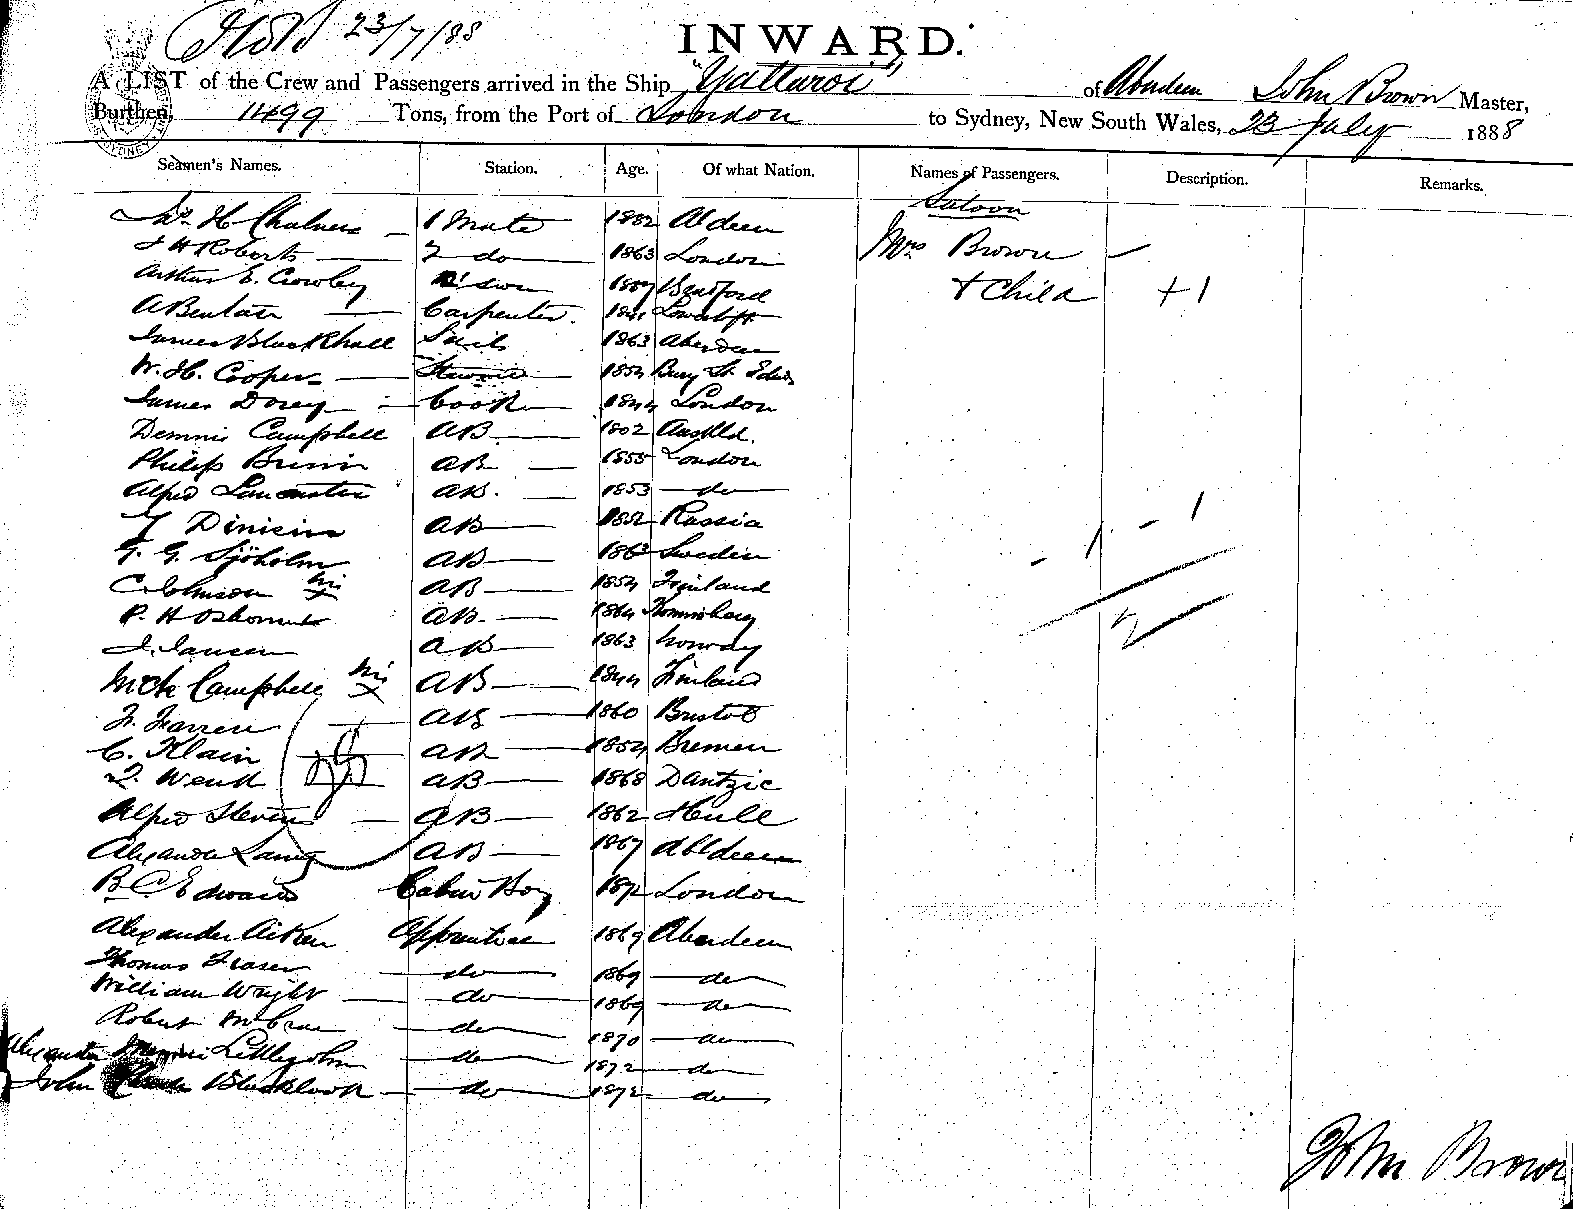 23/7/88
INWARD.
A LIST of the Crew and Passengers arrived in the Ship "Yallaroi" of Aberdeen John Brown Master,
Burthen, 1499 Tons, from the Port of London to Sydney, New South Wales, 23 July 1888
SYDNEY
Seamen's Names. Station. Age. Of what Nation. Names of Passengers. Description. Remarks.
Saloon
H Chalmers 1 Mate 1882 Abdeen
J H Roberts 2 do 1863 London Mrs Brown
Arthur E. Crowley 1857 Bradford + Child + 1
Carpenter. Lowestoft
James Blackhall Sails 1863 Aberdeen
W. H. Cooper Steward 1854 Bury St. Eds
James Dorey Cook 1844 London
Dennis Campbell AB Auskld.
Philip AB 1855 London
Alfred Lancaster AB. 1853 do
AB 1852 Russia - 1 - 1
G. G. Sjöholm AB 1863 Sweden
C. Johnson AB 1854 Finland 2
P. H AB. 1864
J. Jansen AB 1863 Norway
Mck Campbell AB 1844 Finland
AB 1860 Bristol
C. Klain AB 1854 Bremen
AB 1868 Dantzic
Alfred Steven AB 1862 Hull
Alexander Laing AB 1867 Abdeen
B C Edwards Cabin Boy 1872 London
Alexander Aitken Apprentice 1869 Aberdeen
Thomas Fraser do 1869 do
William Wright do 1869 do
Robert McCrae do 1870 do
Alexander Littlejohn do 1872 do
John Blacklock do 1872 do
John Brown